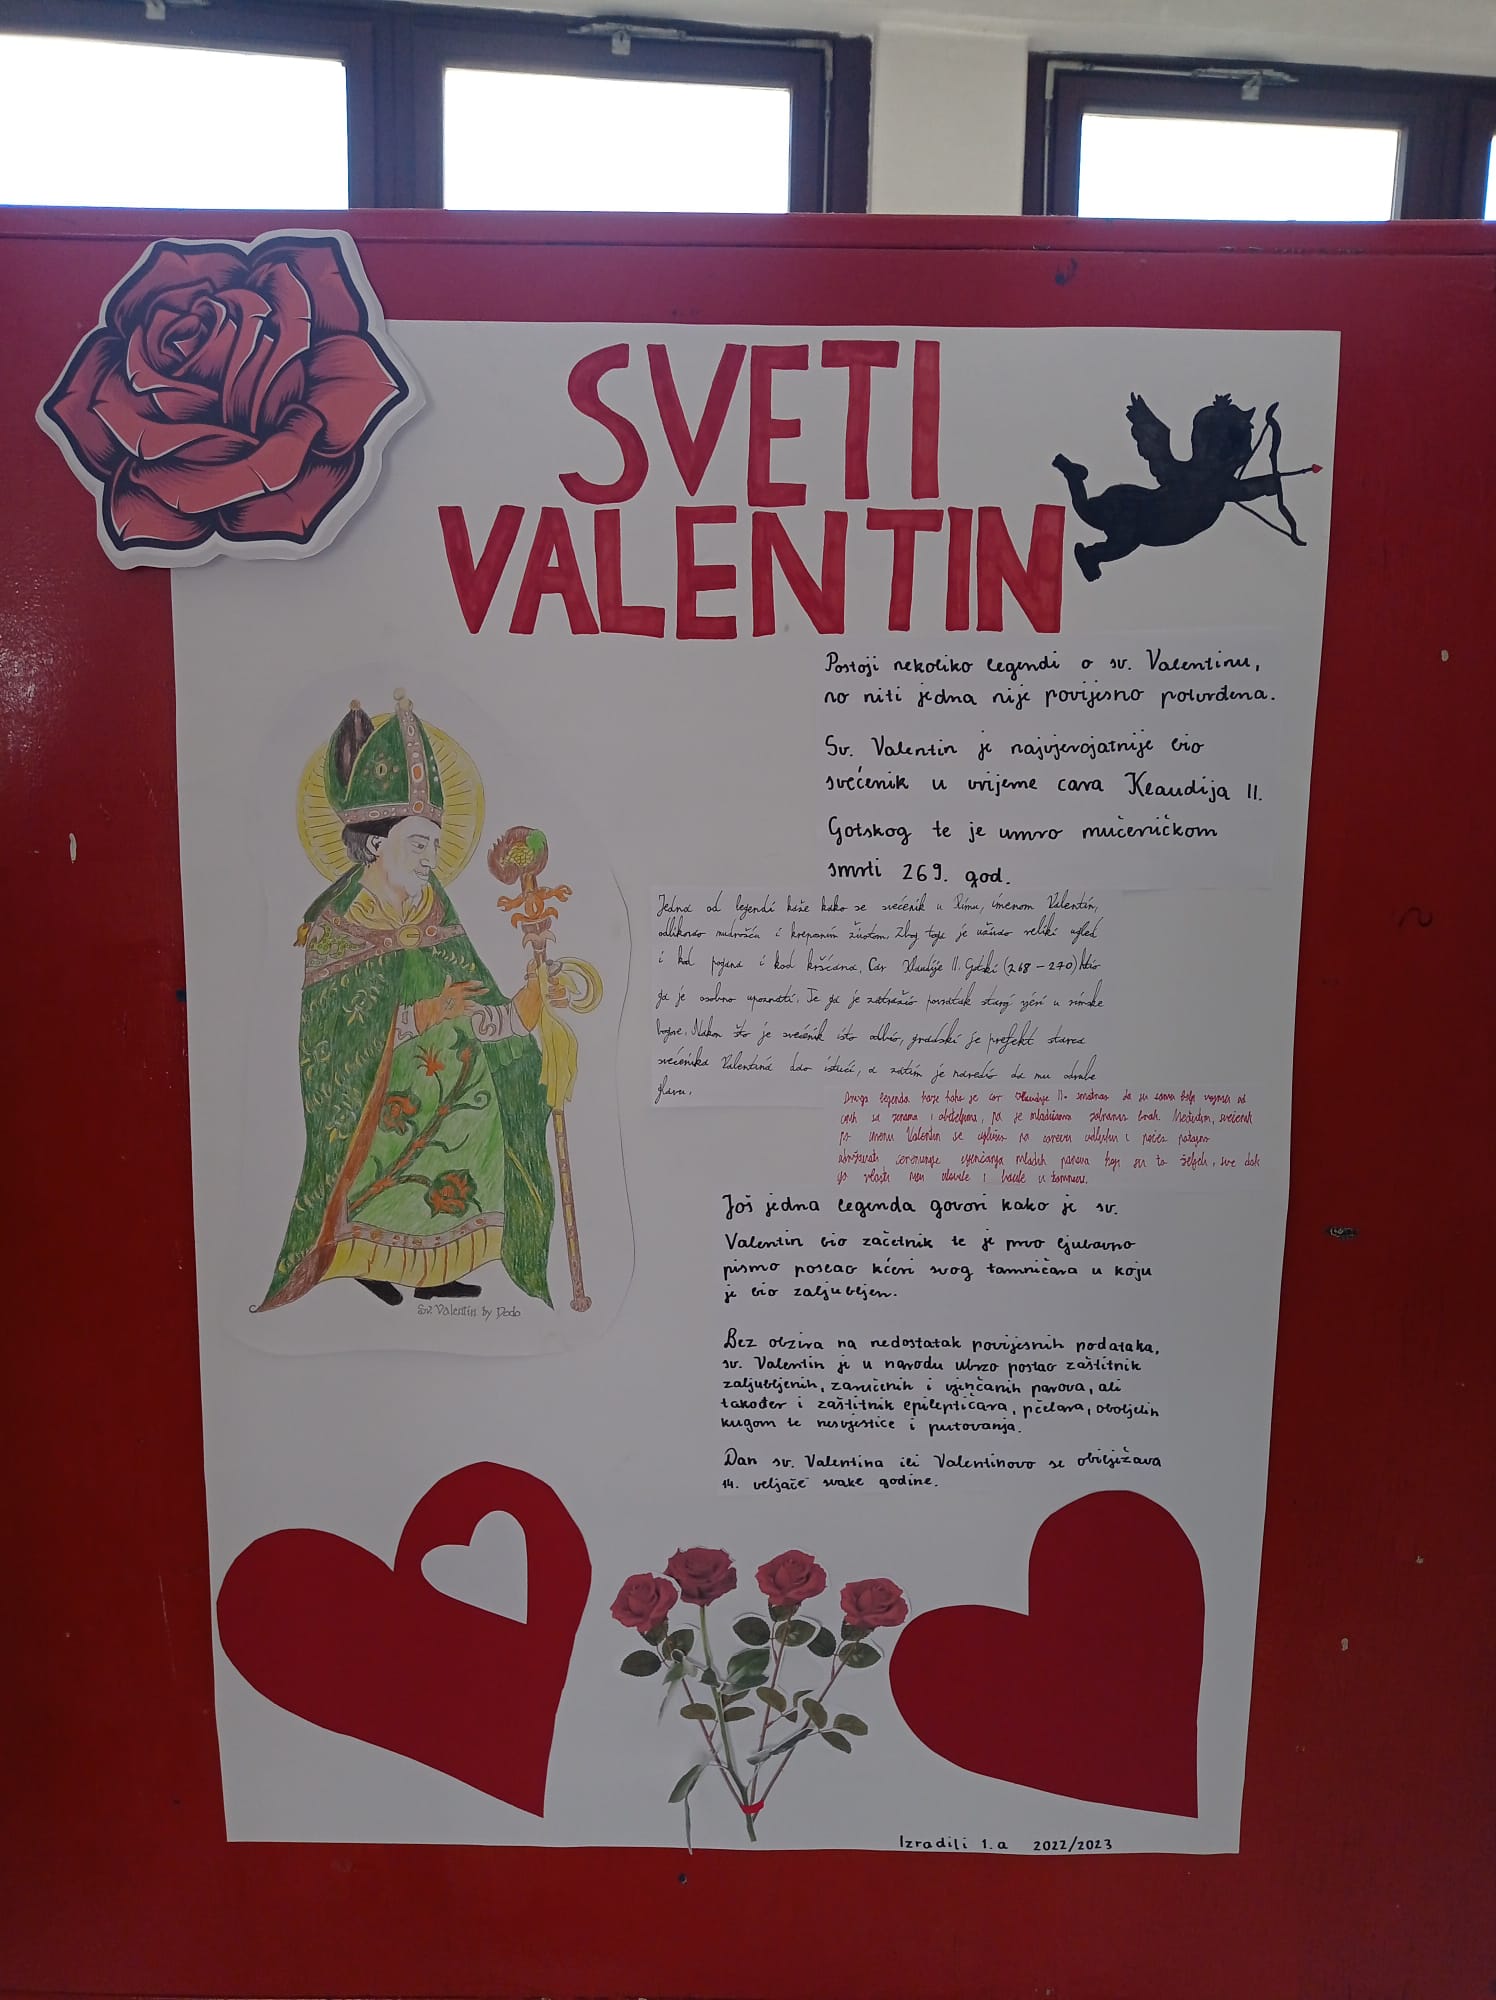 SVETI
VALENTIN
Postoji nekoliko legendi o sv. Valentinu,
no niti jedna nije povijesno potvrđena.
Sv. Valentin je najvjerojatnije bio
svećenik u vrijeme cara Klaudija II.
Gotskog te je umro mučeničkom
smrti 269. god.
Jedna od legendi kaže kako se svećenik u Rimu, imenom Valentin,
odlikovao mudrošću i kreposnim životom. Zbog toga je uživao veliki ugled
i kod pogana i kod kršćana. Car Klaudije II. Gotski (268-270) htio
ga je osobno upoznati. Te ga je zatražio povratak staroj vjeri u rimske
bogove. Nakon što je svećenik isto odbio, gradski je prefekt starca
svećenika Valentina dao istući, a zatim je naredio da mu odrube
glavu.
Druga legenda kaže kako je car Klaudije II. smatrao da su samci bolji vojnici od
onih sa ženama i obiteljima, pa je mladićima zabranio brak. Međutim, svećenik
po imenu Valentin se oglušio na carevu odluku i počeo potajno
obnašati ceremonije vjenčanja mladih parova koji su to željeli, sve dok
ga vlasti nisu i bacile u tamnicu.
Još jedna legenda govori kako je sv.
Valentin bio začetnik te je prvo ljubavno
pismo poslao kćeri svog tamničara u koju
je bio zaljubljen.
Bez obzira na nedostatak povijesnih podataka,
sv. Valentin je u narodu ubrzo postao zaštitnik
zaljubljenih, zaručenih i vjenčanih parova, ali
također i zaštitnik epileptičara, pčelara, oboljelih
kugom te nesvjestice i putovanja.
Dan sv. Valentina ili Valentinovo se obilježava
14. veljače svake godine.
Sv. Valentin by Dodo
Izradili 1.a 2022/2023